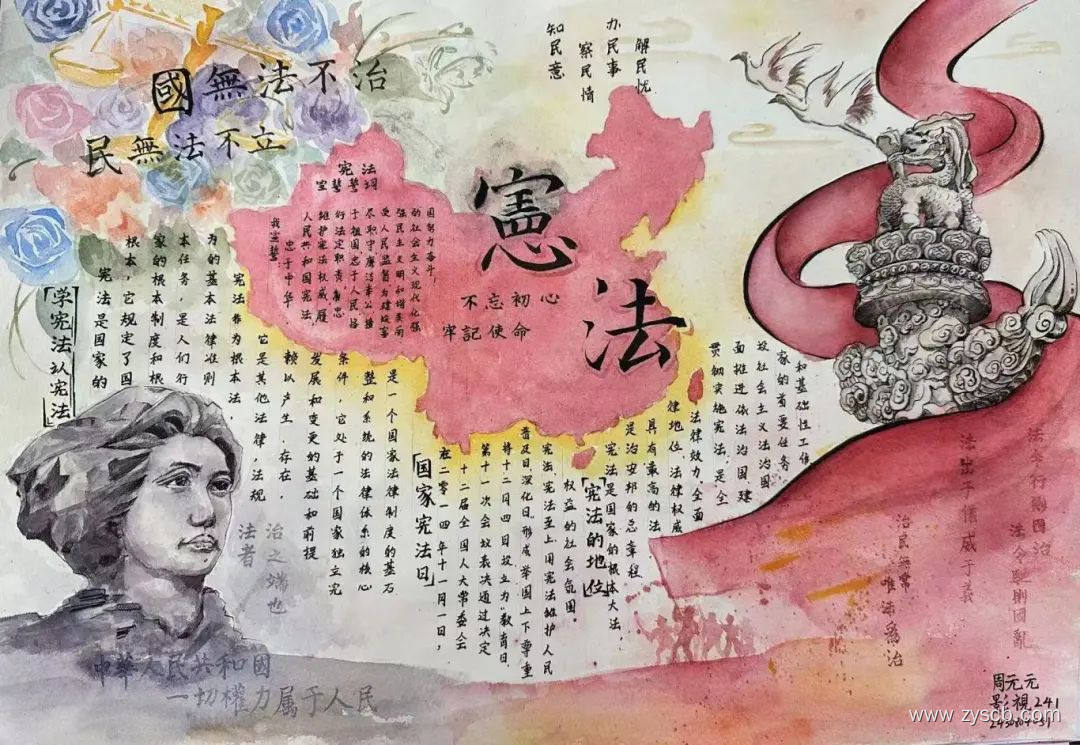 國無法不治
民無法不立
知民意
察民情
办民事
解民忧
憲法
不忘初心
牢記使命
宪法
宣誓誓词
我宣誓:
忠于中华
人民共和国宪法,
维护宪法权威,履
行法定职责,忠
于祖国忠于人民恪
尽职守廉洁奉公接
受人民监督为建设富
强民主文明和谐美丽
的社会主义现代化强
国努力奋斗!
学宪法认宪法
宪法是国家的
根本,它规定了国
家的根本制度和根
本任务,是人们行
为的基本法律准则
宪法作为根本法,
它是其他法律,法规
赖以产生、存在、
发展和变更的基础和前提
条件,它处于一个国家独立完
整和系统的法律体系的核心
是一个国家法律制度的基石
国家宪法日
在二零一四年十一月一日,
十二届全国人大常委会
第十一次会议表决通过决定
将十二月四日设立为"教育日
普及日,深化日,形成举国上下尊重
宪法、宪法至上、用宪法维护人民
权益的社会氛围。
宪法的地位
宪法是国家的根本大法
是治安邦的总章程
具有最高的法
律地位、法律权威
法律效力,全面
贯彻实施宪法,是全
面推进依法治国,建
设社会主义法治国
家的首要任务
和基础性工作
法者
治之端也
中華人民共和國
一切權力属于人民
治民無常
唯法為治
法出于儀威于義
法令行則國治
法令弛則國亂
周元元
影視241
www.zyscb.com